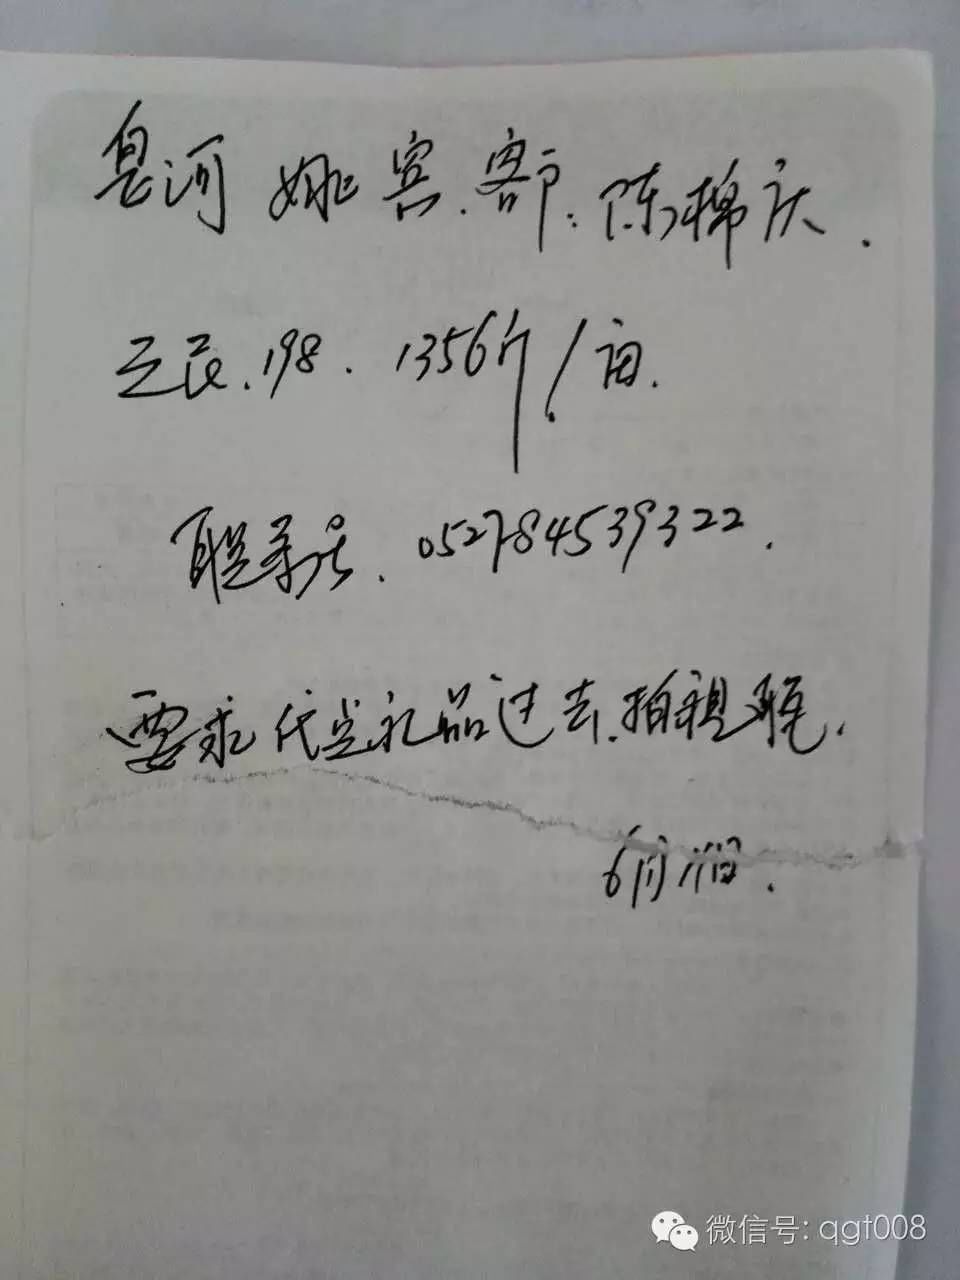 息河 姚宾.客户:陈棉庆.
正民.198. 1356斤/亩.
联系号. 052784539322.
要求代肖礼品过去.拍视频.
6月17日.
微信号: qgt008